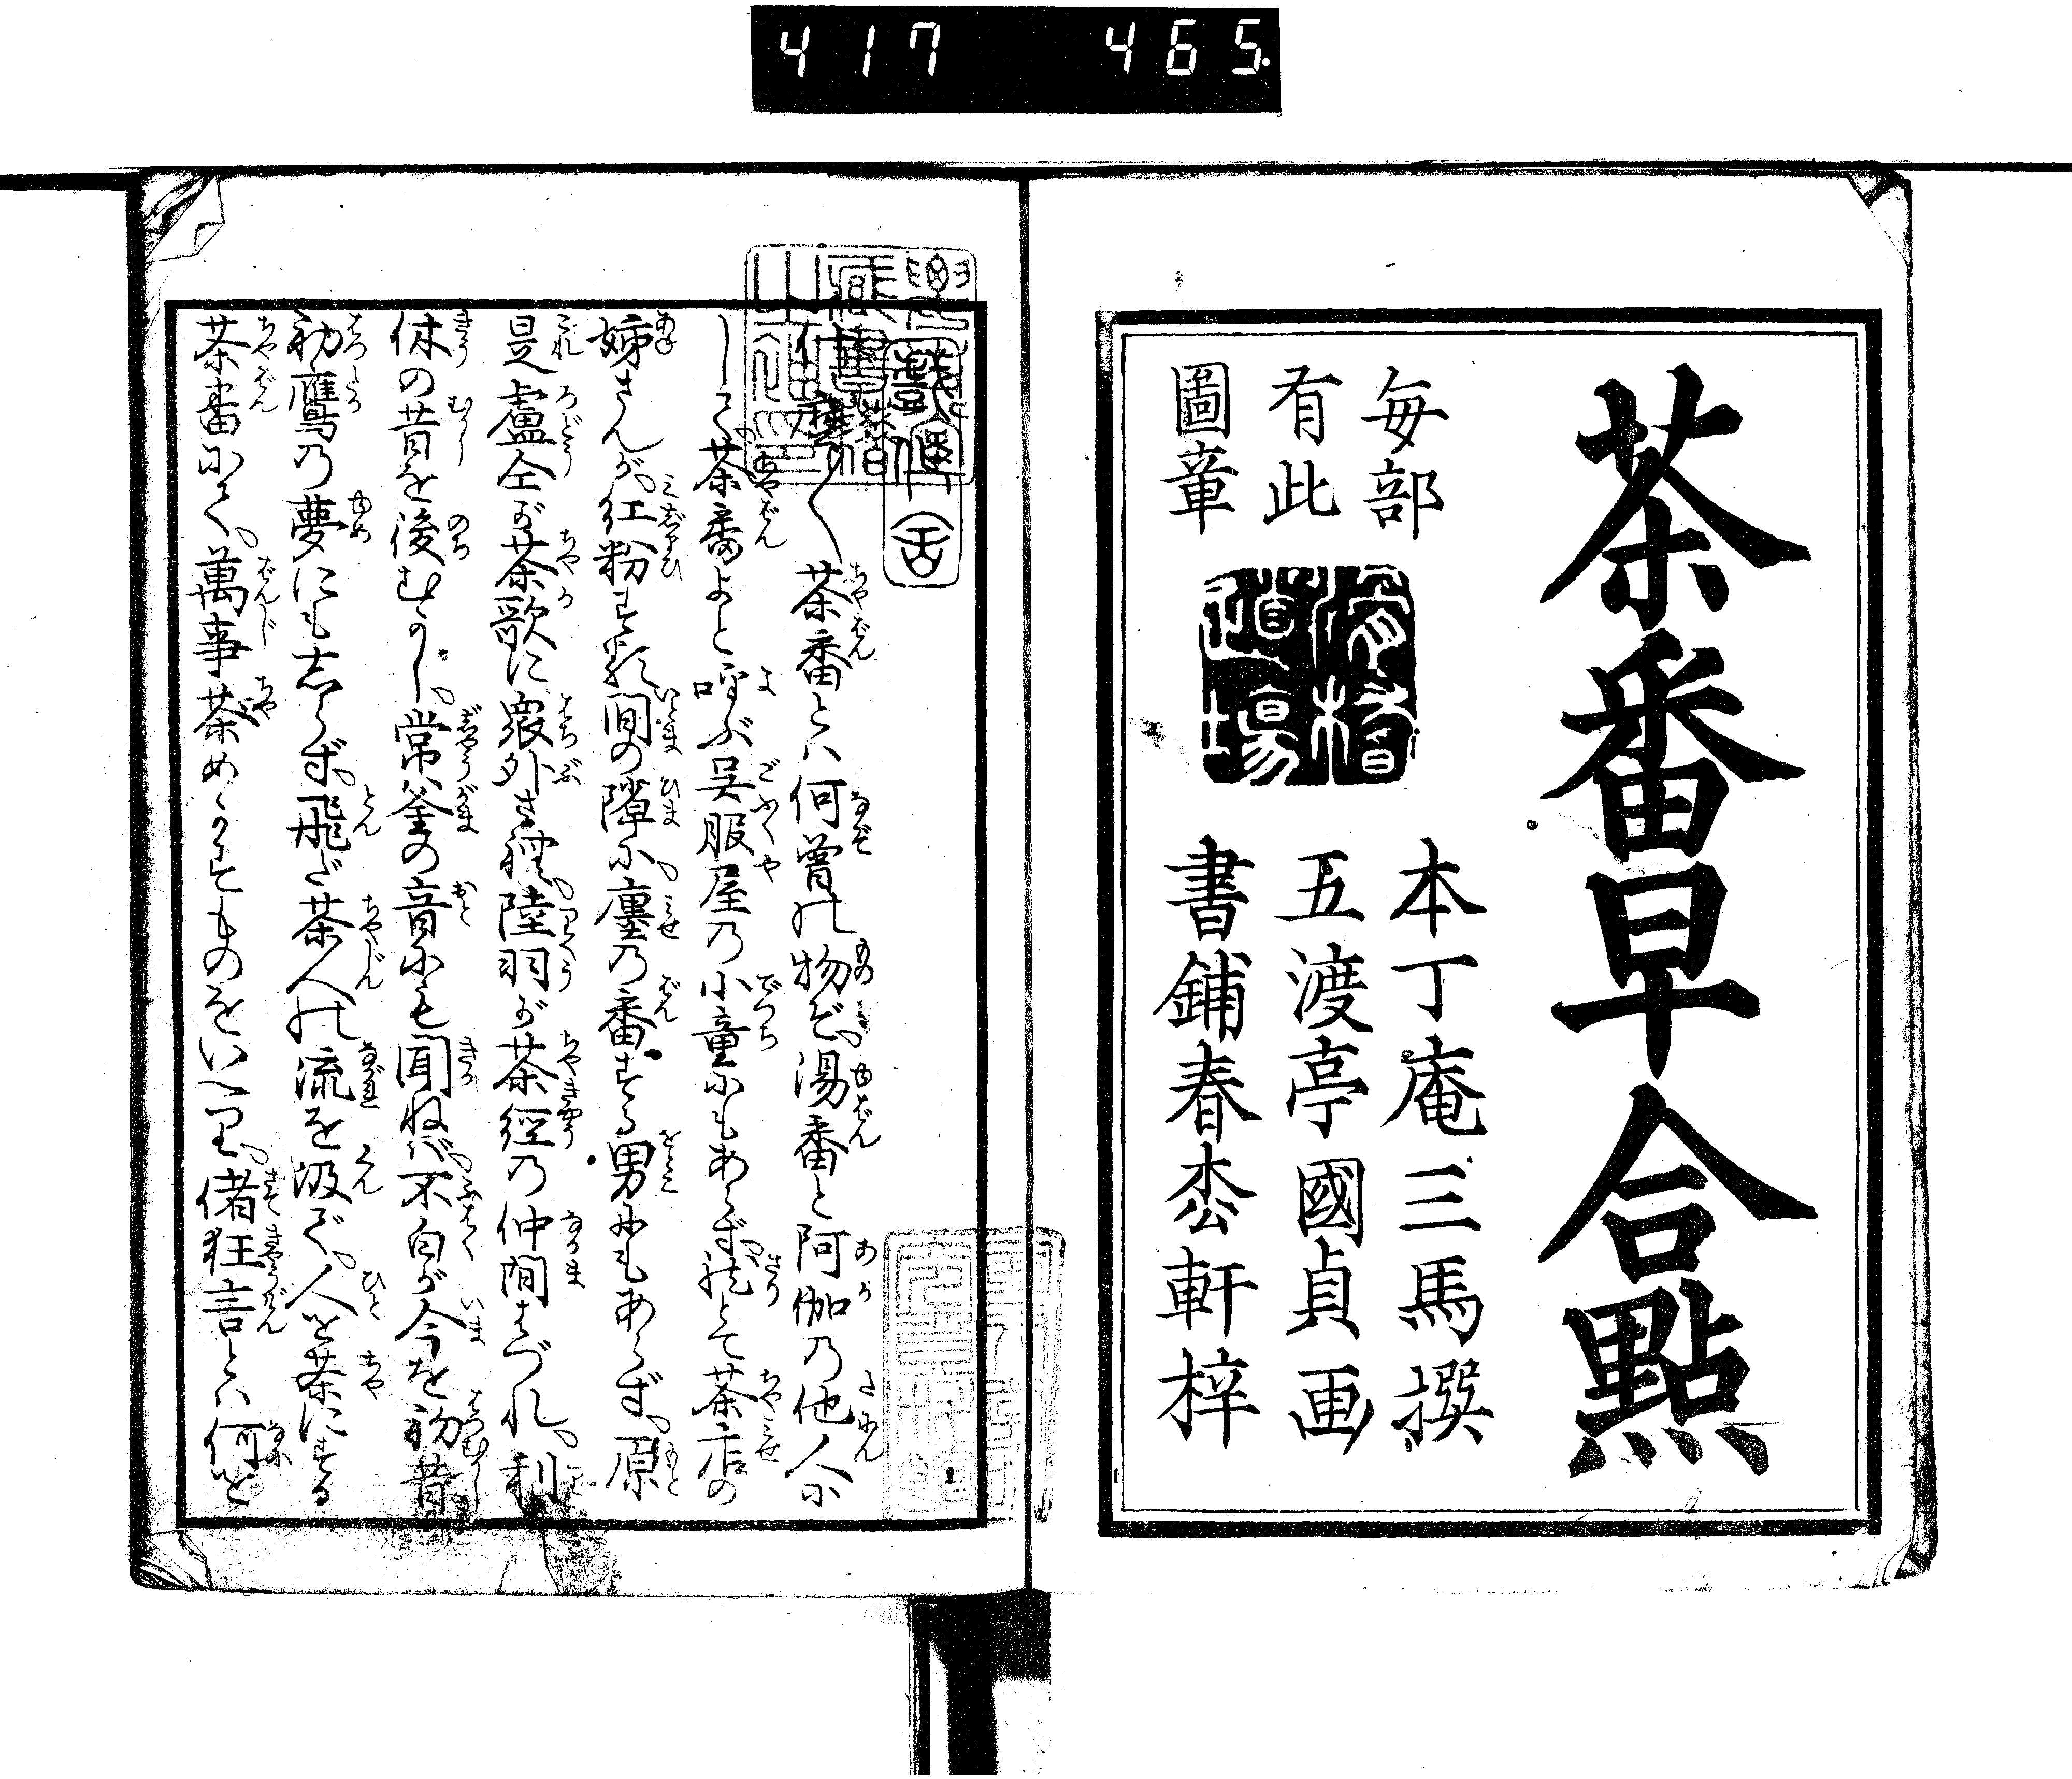 417 465
茶番早合點
毎部
有此
圖章
本丁庵三馬撰
五渡亭國貞画
書鋪春枩軒梓
茶番とハ何曽の物ぞ湯番と阿伽の他人に
して茶番よと呼ぶ呉服屋の小童にもあらず扨とて茶店の
姉さんが紅粉する間の隙に廛の番する男にもあらず原
是盧仝が茶歌に衆外され陸羽が茶經の仲間はづれ利
休の昔を後むかし常釜の音にも聞ねバ不白が今を初昔
初鷹の夢にもしらず飛だ茶人の流を汲で人を茶にする
茶番にて萬事茶めかすものをいへり偖狂言とハ何を